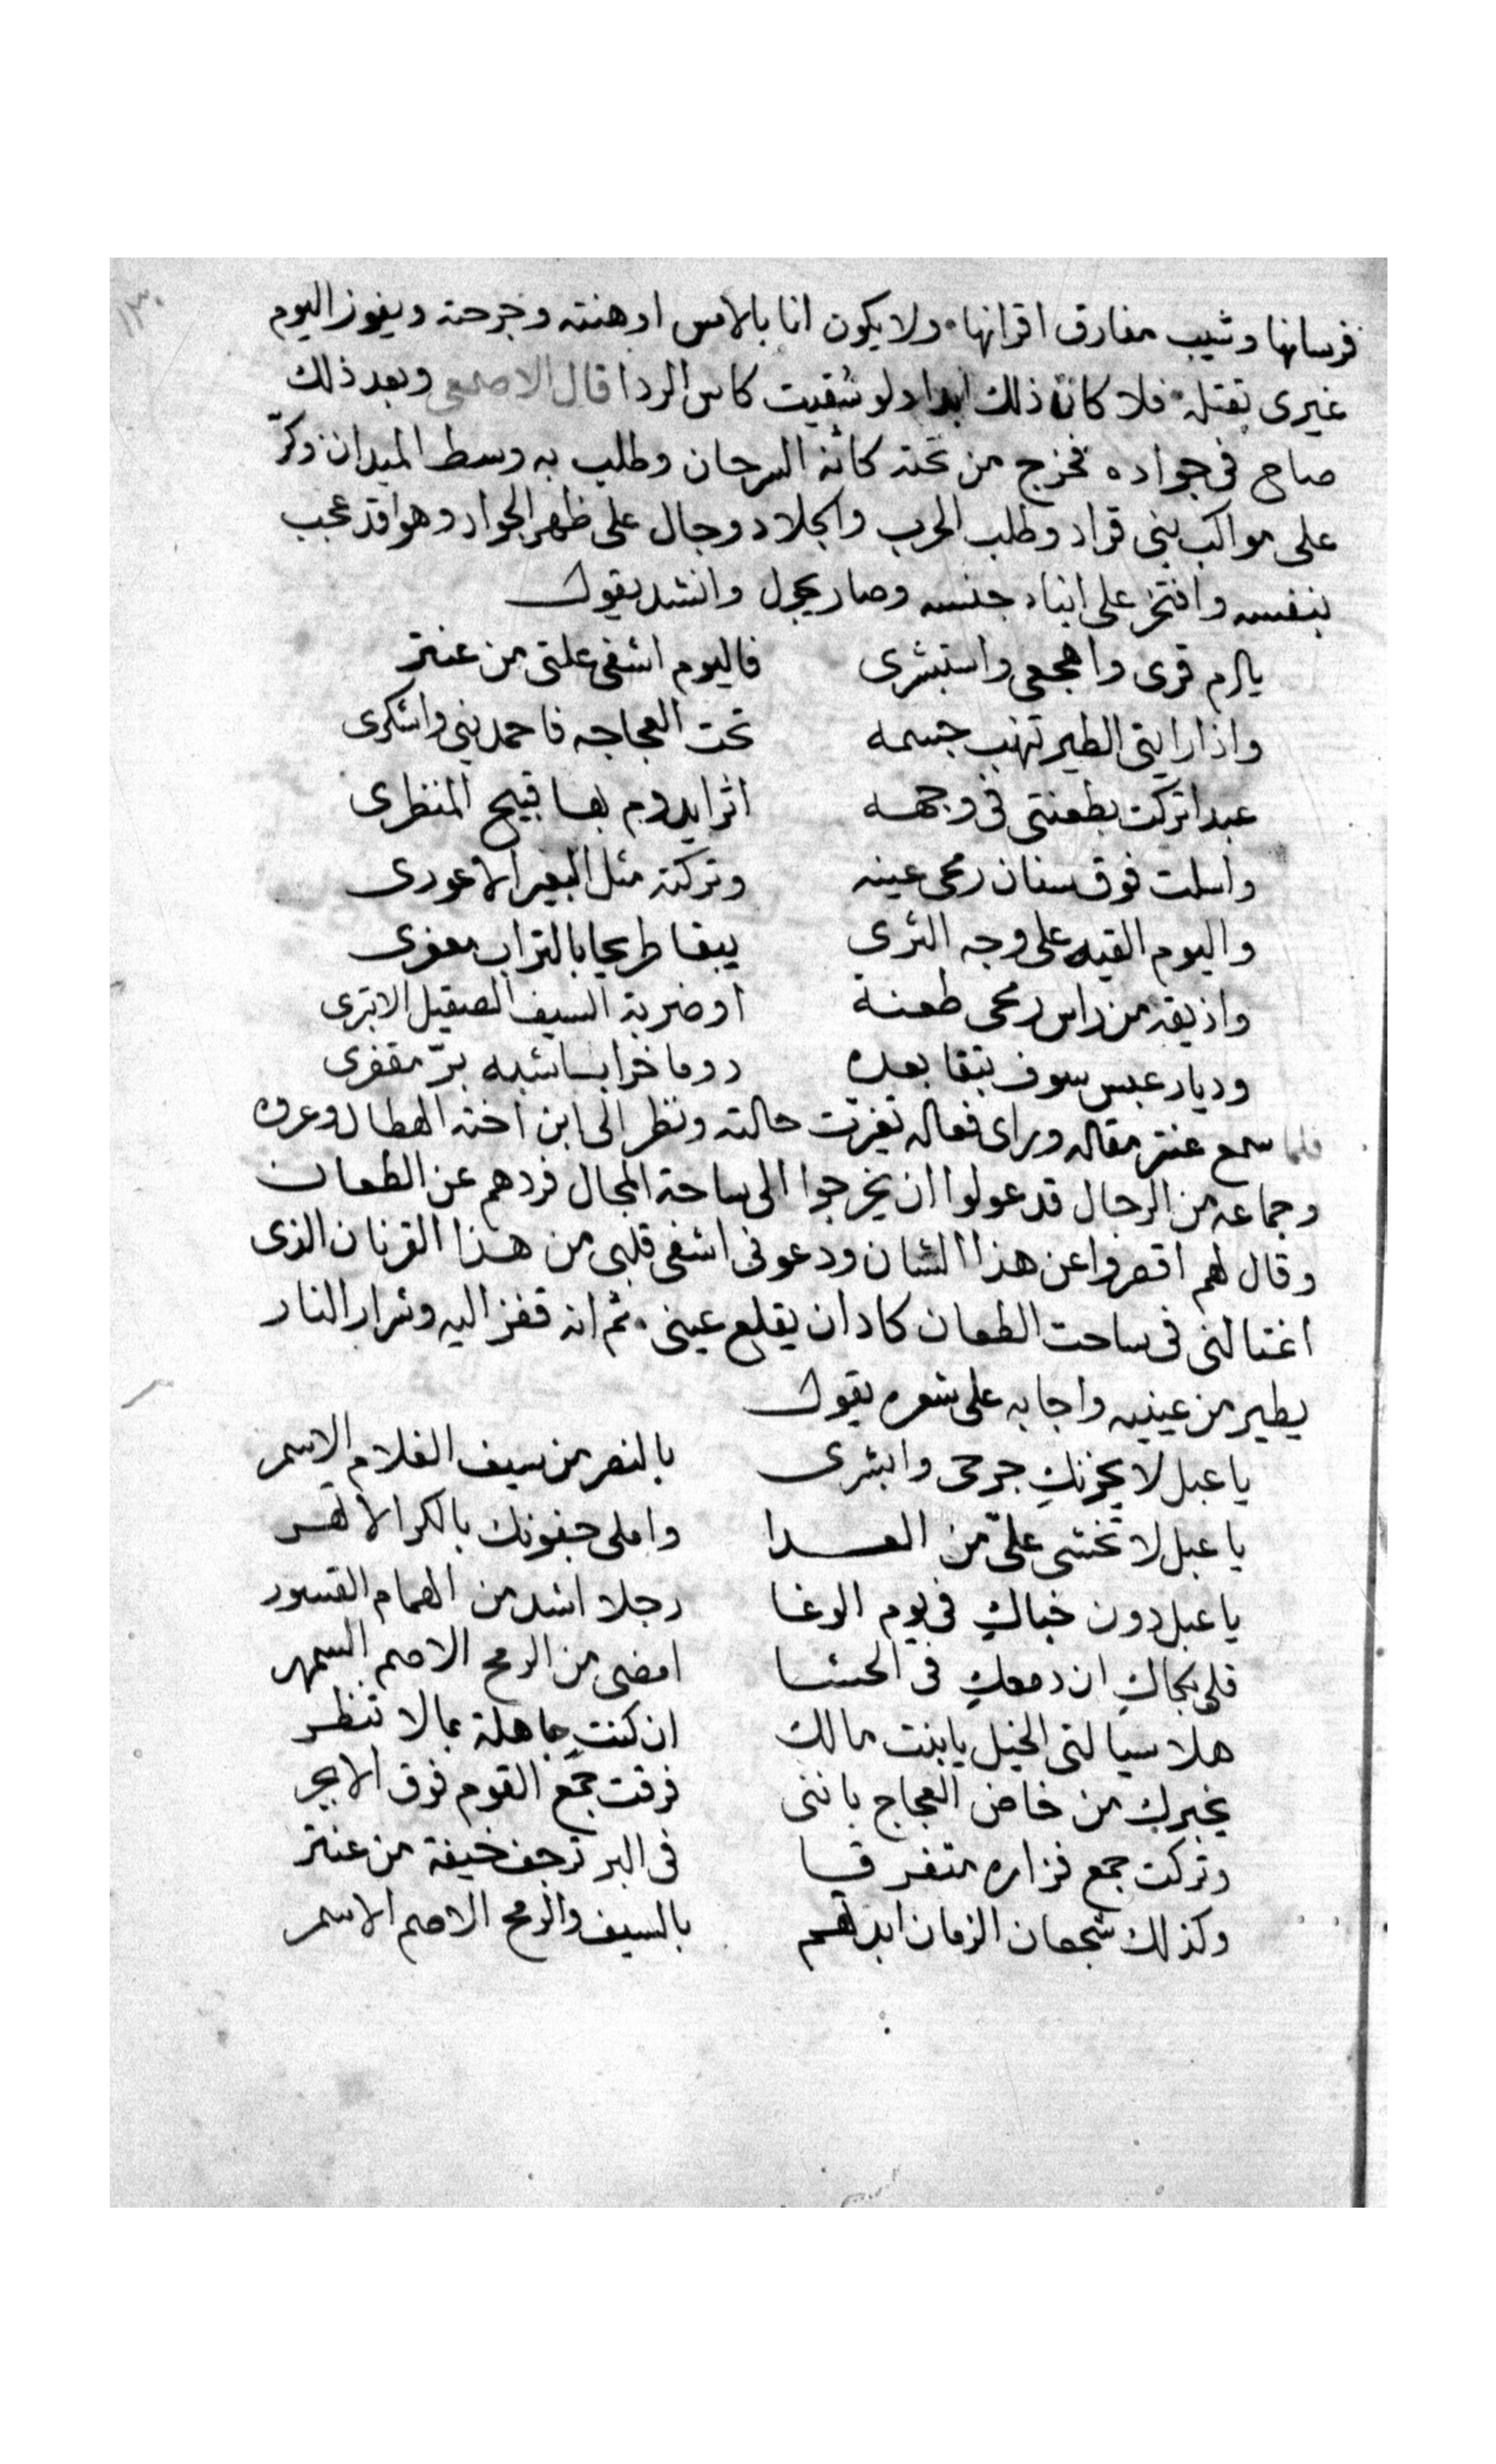 ١٣٠
فرسانها وشيب مفارق اقرانها ولا يكون انا بالامس اوهنته وجرحته ويفوز اليوم
غيرى بقتله فلا كان ذلك ابدا ولو سُقيت كاس الردا قال الاصمعى وبعد ذلك
صاح فى جواده فخرج من تحته كانه السرحان وطلب به وسط الميدان وكرّ
على مواكب بنى قراد وطلب الحرب والجلاد وجال على ظهر الجواد وهو قد عجب
بنفسه وافتخر على ابناء جنسه وصار يجول وانشد يقول
يا ام قرى واهجعى واستبشرى فاليوم اشفى علتى من عنتر
واذا رايتى الطير تنهب جسمه تحت العجاجه فاحمدينى واشكرى
عبدا تركت بطعنتى فى وجهه اثرا يدوم بها قبيح المنظرى
واسلت فوق سنان رمحى عينه وتركته مثل البعير الاعورى
واليوم القيه على وجه الثرى يبقا طريحا بالتراب معفرى
واذيقه من راس رمحى طعنة او ضربة السيف الصقيل الابترى
وديار عبس سوف تبقا بعده دوما خرابا شبه برّ مقفرى
فلما سمع عنتر مقاله وراى فعاله تغيرت حالته ونظر الى ابن اخته الهطال وعروه
وجماعه من الرجال قد عولوا ان يخرجوا الى ساحة المجال فردهم عن الطعان
وقال لهم اقصروا عن هذا الشان ودعونى اشفى قلبى من هذا القرنان الذى
اغتالنى فى ساحت الطعان كاد ان يقلع عينى ثم انه قفز اليه وشرار النار
يطير من عينيه واجابه على شعره يقول
يا عبل لا يحزنكِ جرحى وابشرى بالنصر من سيف الغلام الاسمر
يا عبل لا تخشى علىّ من العدا واملى جفونك بالكرا لا تسهر
يا عبل دون خباكِ فى يوم الوغا رجلا اشد من الهمام القسور
قلبى ان دمعكِ فى الحشا امضى من الرمح الاصم السمهر
هلا سيالتى الخيل يا بنت مالك ان كنتِ جاهلة بما لا تنظر
يخبرك من خاض العجاج باننى فرقت جمع القوم فوق الابجر
وتركت جمع فزاره متفرقا فى البر ترجف خيفة من عنتر
وكذلك شجعان الزمان ابدتهم بالسيف والرمح الاصم الاسمر